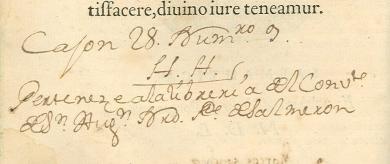 tisfacere, diuino iure teneamur.
Cajon 28. Num^ro 9
H. H.
Perteneze a la libreria del Conv^to
de S^n Aug^n N^ro. P^e de Salmeron